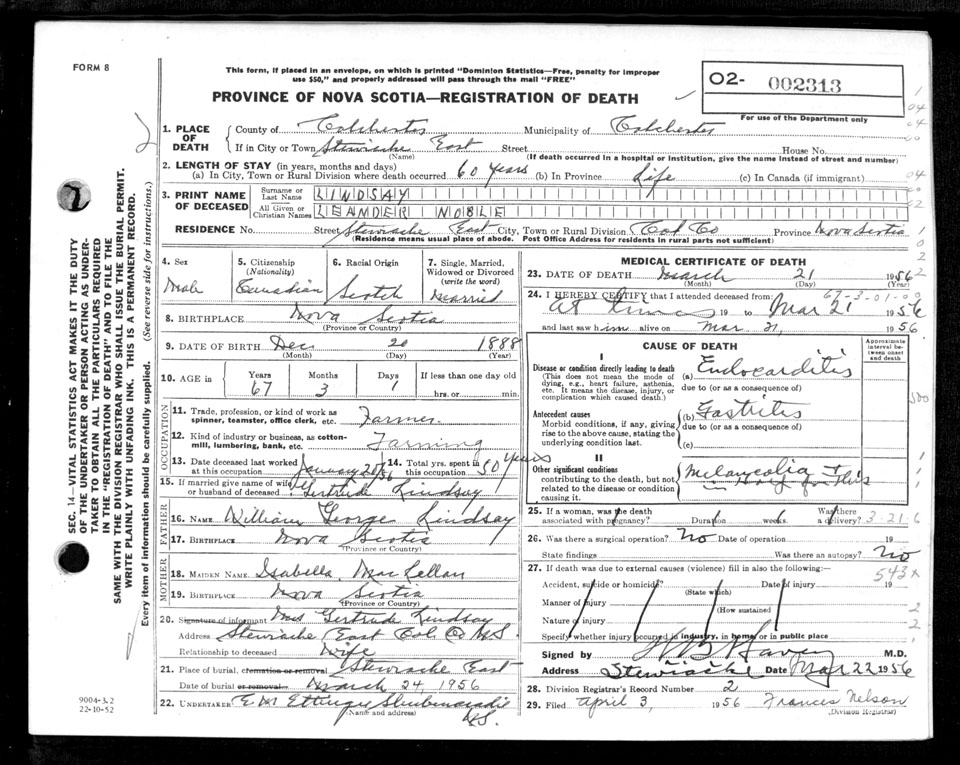 FORM 8
This form, if placed in an envelope, on which is printed "Dominion Statistics—Free, penalty for improper
use $50," and properly addressed will pass through the mail "FREE"
O2- 002313
For use of the Department only
PROVINCE OF NOVA SCOTIA—REGISTRATION OF DEATH
SEC. 14—VITAL STATISTICS ACT MAKES IT THE DUTY
OF THE UNDERTAKER OR PERSON ACTING AS UNDER-
TAKER TO OBTAIN ALL THE PARTICULARS REQUIRED
IN THE "REGISTRATION OF DEATH" AND TO FILE THE
SAME WITH THE DIVISION REGISTRAR WHO SHALL ISSUE THE BURIAL PERMIT.
WRITE PLAINLY WITH UNFADING INK. THIS IS A PERMANENT RECORD.
Every item of information should be carefully supplied. (See reverse side for instructions.)
1. PLACE OF DEATH
County of Colchester Municipality of Colchester
If in City or Town Stewiacke East Street House No.
(Name) (If death occurred in a hospital or institution, give the name instead of street and number)
2. LENGTH OF STAY (in years, months and days)
(a) In City, Town or Rural Division where death occurred 60 years (b) In Province Life (c) In Canada (if immigrant)
3. PRINT NAME OF DECEASED
Surname or Last Name LINDSAY
All Given or Christian Names LEANDER NOBLE
RESIDENCE No. Street Stewiacke East City, Town or Rural Division Col Co Province Nova Scotia
(Residence means usual place of abode. Post Office Address for residents in rural parts not sufficient)
4. Sex Male
5. Citizenship (Nationality) Canadian
6. Racial Origin Scotch
7. Single, Married, Widowed or Divorced (write the word) Married
8. BIRTHPLACE Nova Scotia
(Province or Country)
9. DATE OF BIRTH Dec 20 1888
(Month) (Day) (Year)
10. AGE in Years 67 Months 3 Days 1 If less than one day old hrs. or min.
OCCUPATION
11. Trade, profession, or kind of work as spinner, teamster, office clerk, etc. Farmer
12. Kind of industry or business, as cotton-mill, lumbering, bank, etc. Farming
13. Date deceased last worked at this occupation January 20/56
14. Total yrs. spent in this occupation 50 years
15. If married give name of wife or husband of deceased Gertrude Lindsay
FATHER
16. NAME William George Lindsay
17. BIRTHPLACE Nova Scotia
(Province or Country)
MOTHER
18. MAIDEN NAME Isabella MacLellan
19. BIRTHPLACE Nova Scotia
(Province or Country)
20. Signature of informant Mrs Gertrude Lindsay
Address Stewiacke East Col Co NS.
Relationship to deceased Wife
21. Place of burial, cremation or removal Stewiacke East
Date of burial or removal March 24 1956
22. UNDERTAKER E M Ettinger Shubenacadie
(Name and address) NS.
9004-3.2
22-10-52
MEDICAL CERTIFICATE OF DEATH
23. DATE OF DEATH March 21 1956
(Month) (Day) (Year)
24. I HEREBY CERTIFY that I attended deceased from 67-3-01-00
at times 19 to Mar 21 1956
and last saw him alive on Mar 21, 1956
CAUSE OF DEATH
Approximate interval between onset and death
I
Disease or condition directly leading to death
(This does not mean the mode of dying, e.g., heart failure, asthenia, etc. It means the disease, injury, or complication which caused death.)
(a) Endocarditis
due to (or as a consequence of)
Antecedent causes
Morbid conditions, if any, giving rise to the above cause, stating the underlying condition last.
(b) Gastritis
due to (or as a consequence of)
(c)
II
Other significant conditions
contributing to the death, but not related to the disease or condition causing it.
Melancolia
25. If a woman, was the death associated with pregnancy? Duration weeks. Was there a delivery? 3-21 6
26. Was there a surgical operation? No Date of operation 19
State findings Was there an autopsy? No
27. If death was due to external causes (violence) fill in also the following:— 543x
Accident, suicide or homicide? Date of injury 19
(State which)
Manner of injury
(How sustained)
Nature of injury
Specify whether injury occurred in industry, in home, or in public place
Signed by M.D.
Address Stewiacke Date Mar 22 1956
28. Division Registrar's Record Number 2
29. Filed April 3, 1956 Frances Nelson
(Division Registrar)